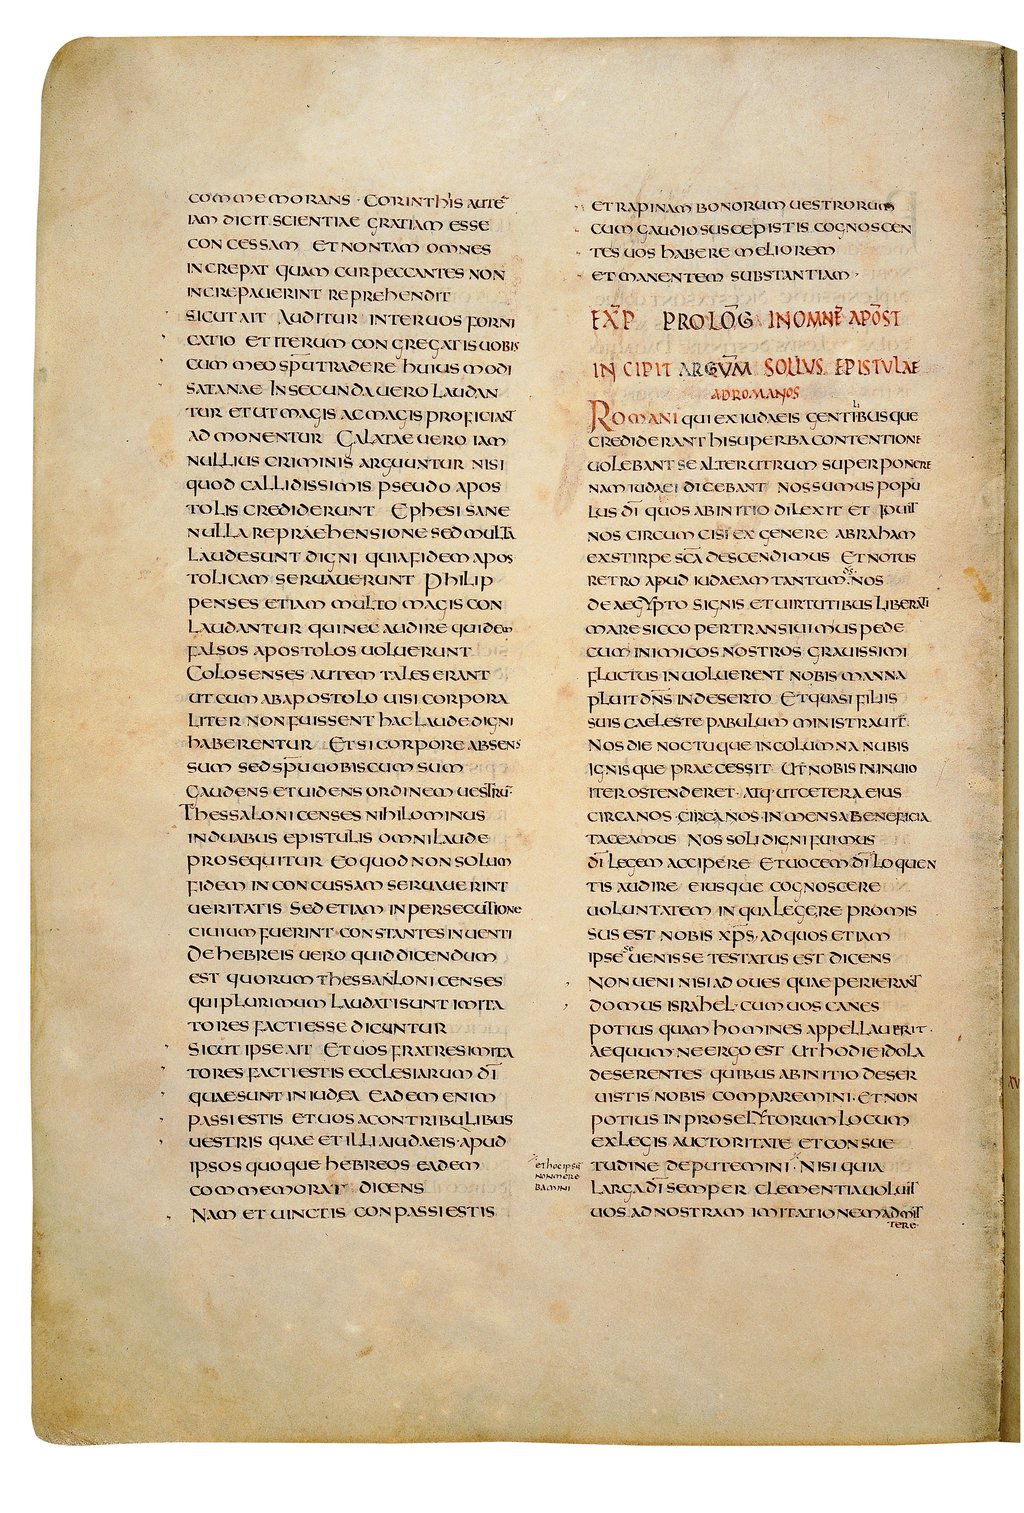 COMMEMORANS · CORINTHIIS AUTĒ
IAM DICIT SCIENTIAE GRATIAM ESSE
CONCESSAM ET NON TAM OMNES
INCREPAT QUAM CUR PECCANTES NON
INCREPAUERINT REPREHENDIT
SICUT AIT AUDITUR INTER UOS FORNI
CATIO ET ITERUM CONGREGATIS UOBIS
CUM MEO SPŪ TRADERE HUIUS MODI
SATANAE IN SECUNDA UERO LAUDAN
TUR ET UT MAGIS AC MAGIS PROFICIANT
ADMONENTUR GALATAE UERO IAM
NULLIUS CRIMINIS ARGUUNTUR NISI
QUOD CALLIDISSIMIS PSEUDO APOS
TOLIS CREDIDERUNT EPHESI SANE
NULLA REPRAEHENSIONE SED MULTA
LAUDE SUNT DIGNI QUIA FIDEM APOS
TOLICAM SERUAUERUNT PHILIP
PENSES ETIAM MULTO MAGIS CON
LAUDANTUR QUI NEC AUDIRE QUIDEM
FALSOS APOSTOLOS UOLUERUNT
COLOSENSES AUTEM TALES ERANT
UT CUM AB APOSTOLO UISI CORPORA
LITER NON FUISSENT HAC LAUDE DIGNI
HABERENTUR ET SI CORPORE ABSENS
SUM SED SPŪ UOBISCUM SUM
GAUDENS ET UIDENS ORDINEM UESTRŪ·
THESSALONICENSES NIHILOMINUS
IN DUABUS EPISTULIS OMNI LAUDE
PROSEQUITUR EO QUOD NON SOLUM
FIDEM INCONCUSSAM SERUAUERINT
UERITATIS SED ETIAM IN PERSECUTIONE
CIUIUM FUERINT CONSTANTES INUENTI
DE HEBREIS UERO QUID DICENDUM
EST QUORUM THESSALONICENSES
QUI PLURIMUM LAUDATI SUNT IMITA
TORES FACTI ESSE DICUNTUR
SICUT IPSE AIT ET UOS FRATRES IMITA
TORES FACTI ESTIS ECCLESIARUM DĪ
QUAE SUNT IN IUDEA EADEM ENIM
PASSI ESTIS ET UOS A CONTRIBULIBUS
UESTRIS QUAE ET ILLI A IUDAEIS · APUD
IPSOS QUOQUE HEBREOS EADEM
COMMEMORAT DICENS
NAM ET UINCTIS CONPASSI ESTIS
ET RAPINAM BONORUM UESTRORUM
CUM GAUDIO SUSCEPISTIS COGNOSCEN
TES UOS HABERE MELIOREM
ET MANENTEM SUBSTANTIAM ·
EXP̄ PROLOḠ IN OMNĒ APŌST
INCIPIT ARGVM̄ SOLIVS EPISTVLAE
AD ROMANOS
ROMANI QUI EX IUDAEIS GENTIBUSQUE
CREDIDERANT HI SUPERBA CONTENTIONE
UOLEBANT SE ALTERUTRUM SUPERPONERE
NAM IUDAEI DICEBANT NOS SUMUS POPU
LUS DĪ QUOS AB INITIO DILEXIT ET FOUIT
NOS CIRCUMCISI EX GENERE ABRAHAM
EX STIRPE SC̄A DESCENDIMUS ET NOTUS
RETRO APUD IUDAEAM TANTUM DS̄ NOS
DE AEGYPTO SIGNIS ET UIRTUTIBUS LIBERATI
MARE SICCO PERTRANSIUIMUS PEDE
CUM INIMICOS NOSTROS GRAUISSIMI
FLUCTUS INUOLUERENT NOBIS MANNA
PLUIT DN̄S IN DESERTO ET QUASI FILIIS
SUIS CAELESTE PABULUM MINISTRAUIT
NOS DIE NOCTUQUE IN COLUMNA NUBIS
IGNISQUE PRAECESSIT UT NOBIS IN INUIO
ITER OSTENDERET · ATQ· UT CETERA EIUS
CIRCA NOS · CIRCA NOS · IN MENSA BENEFICIA
TACEAMUS NOS SOLI DIGNI FUIMUS
DĪ LEGEM ACCIPERE ET UOCEM DĪ LOQUEN
TIS AUDIRE EIUSQUE COGNOSCERE
UOLUNTATEM IN QUA LEGE RE PROMIS
SUS EST NOBIS XP̄S· AD QUOS ETIAM
IPSE SE UENISSE TESTATUS EST DICENS
NON UENI NISI AD OUES QUAE PERIERANT
DOMUS ISRAHEL· CUM UOS CANES
POTIUS QUAM HOMINES APPELLAUERIT ·
AEQUUM NE ERGO EST UT HODIE IDOLA
DESERENTES QUIBUS AB INITIO DESER
UISTIS NOBIS COMPAREMINI · ET NON
POTIUS IN PROSELYTORUM LOCUM
EX LEGIS AUCTORITATE ET CONSUE
TUDINE DEPUTEMINI · NISI QUIA
et hoc ipsū
non mere
bamini
LARGA DĪ SEMPER CLEMENTIA UOLUIT
UOS AD NOSTRAM IMITATIONEM ADMIT
TERE·